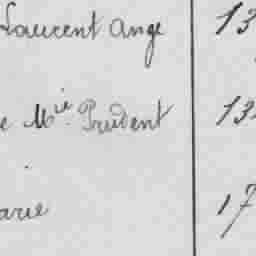 Laurent Ange 13
e Mie Prudent 13
arie 17